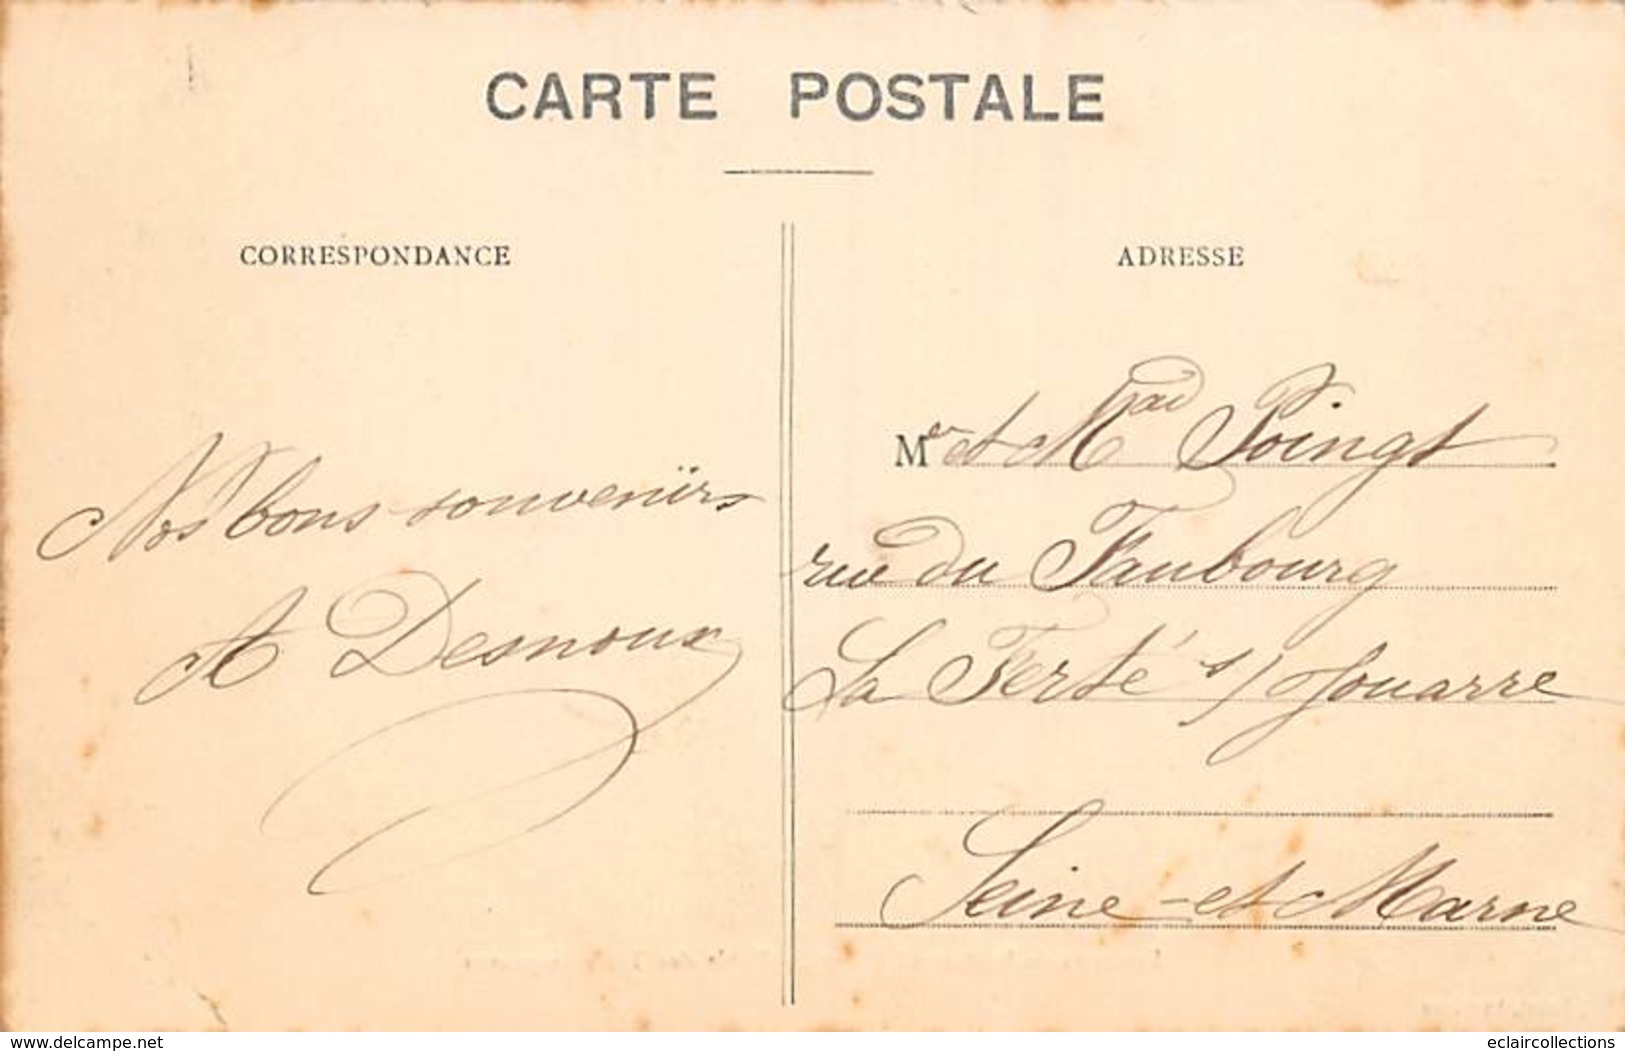 CARTE POSTALE
CORRESPONDANCE
ADRESSE
Nos bons souvenirs
A Desnoux
Mer et Mad Poingt
rue du Faubourg
La Ferté s/ Jouarre
Seine-et Marne
www.delcampe.net
eclaircollections